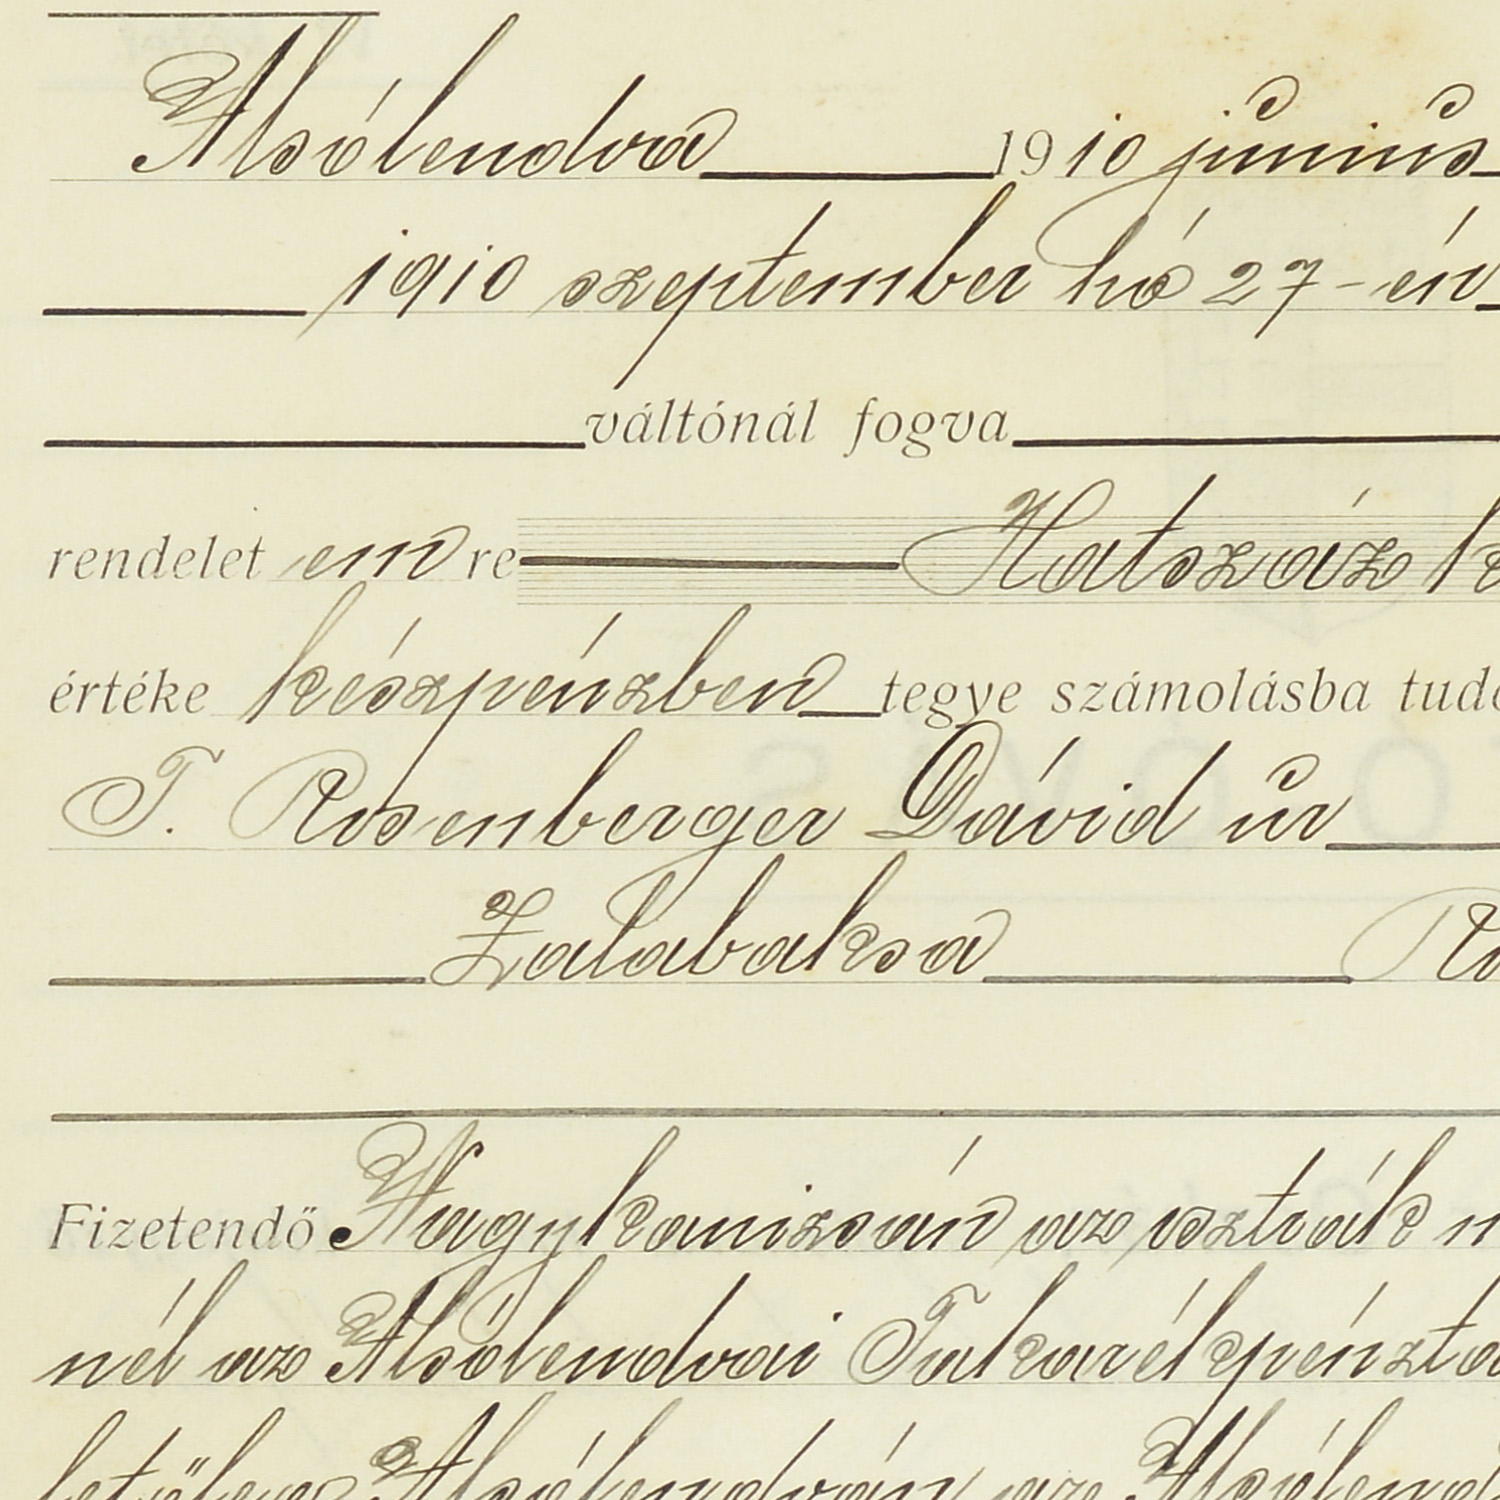 Alsólendva 1910 június
1910 szeptember hó 27-én
váltónál fogva
rendelet em re Hatszáz
értéke készpénzben tegye számolásba
T. Rosenberger Dávid úr
Zalabaksa
Fizetendő Nagykanizsán az osztrák
nél az Alsólendvai
Alsólendván az